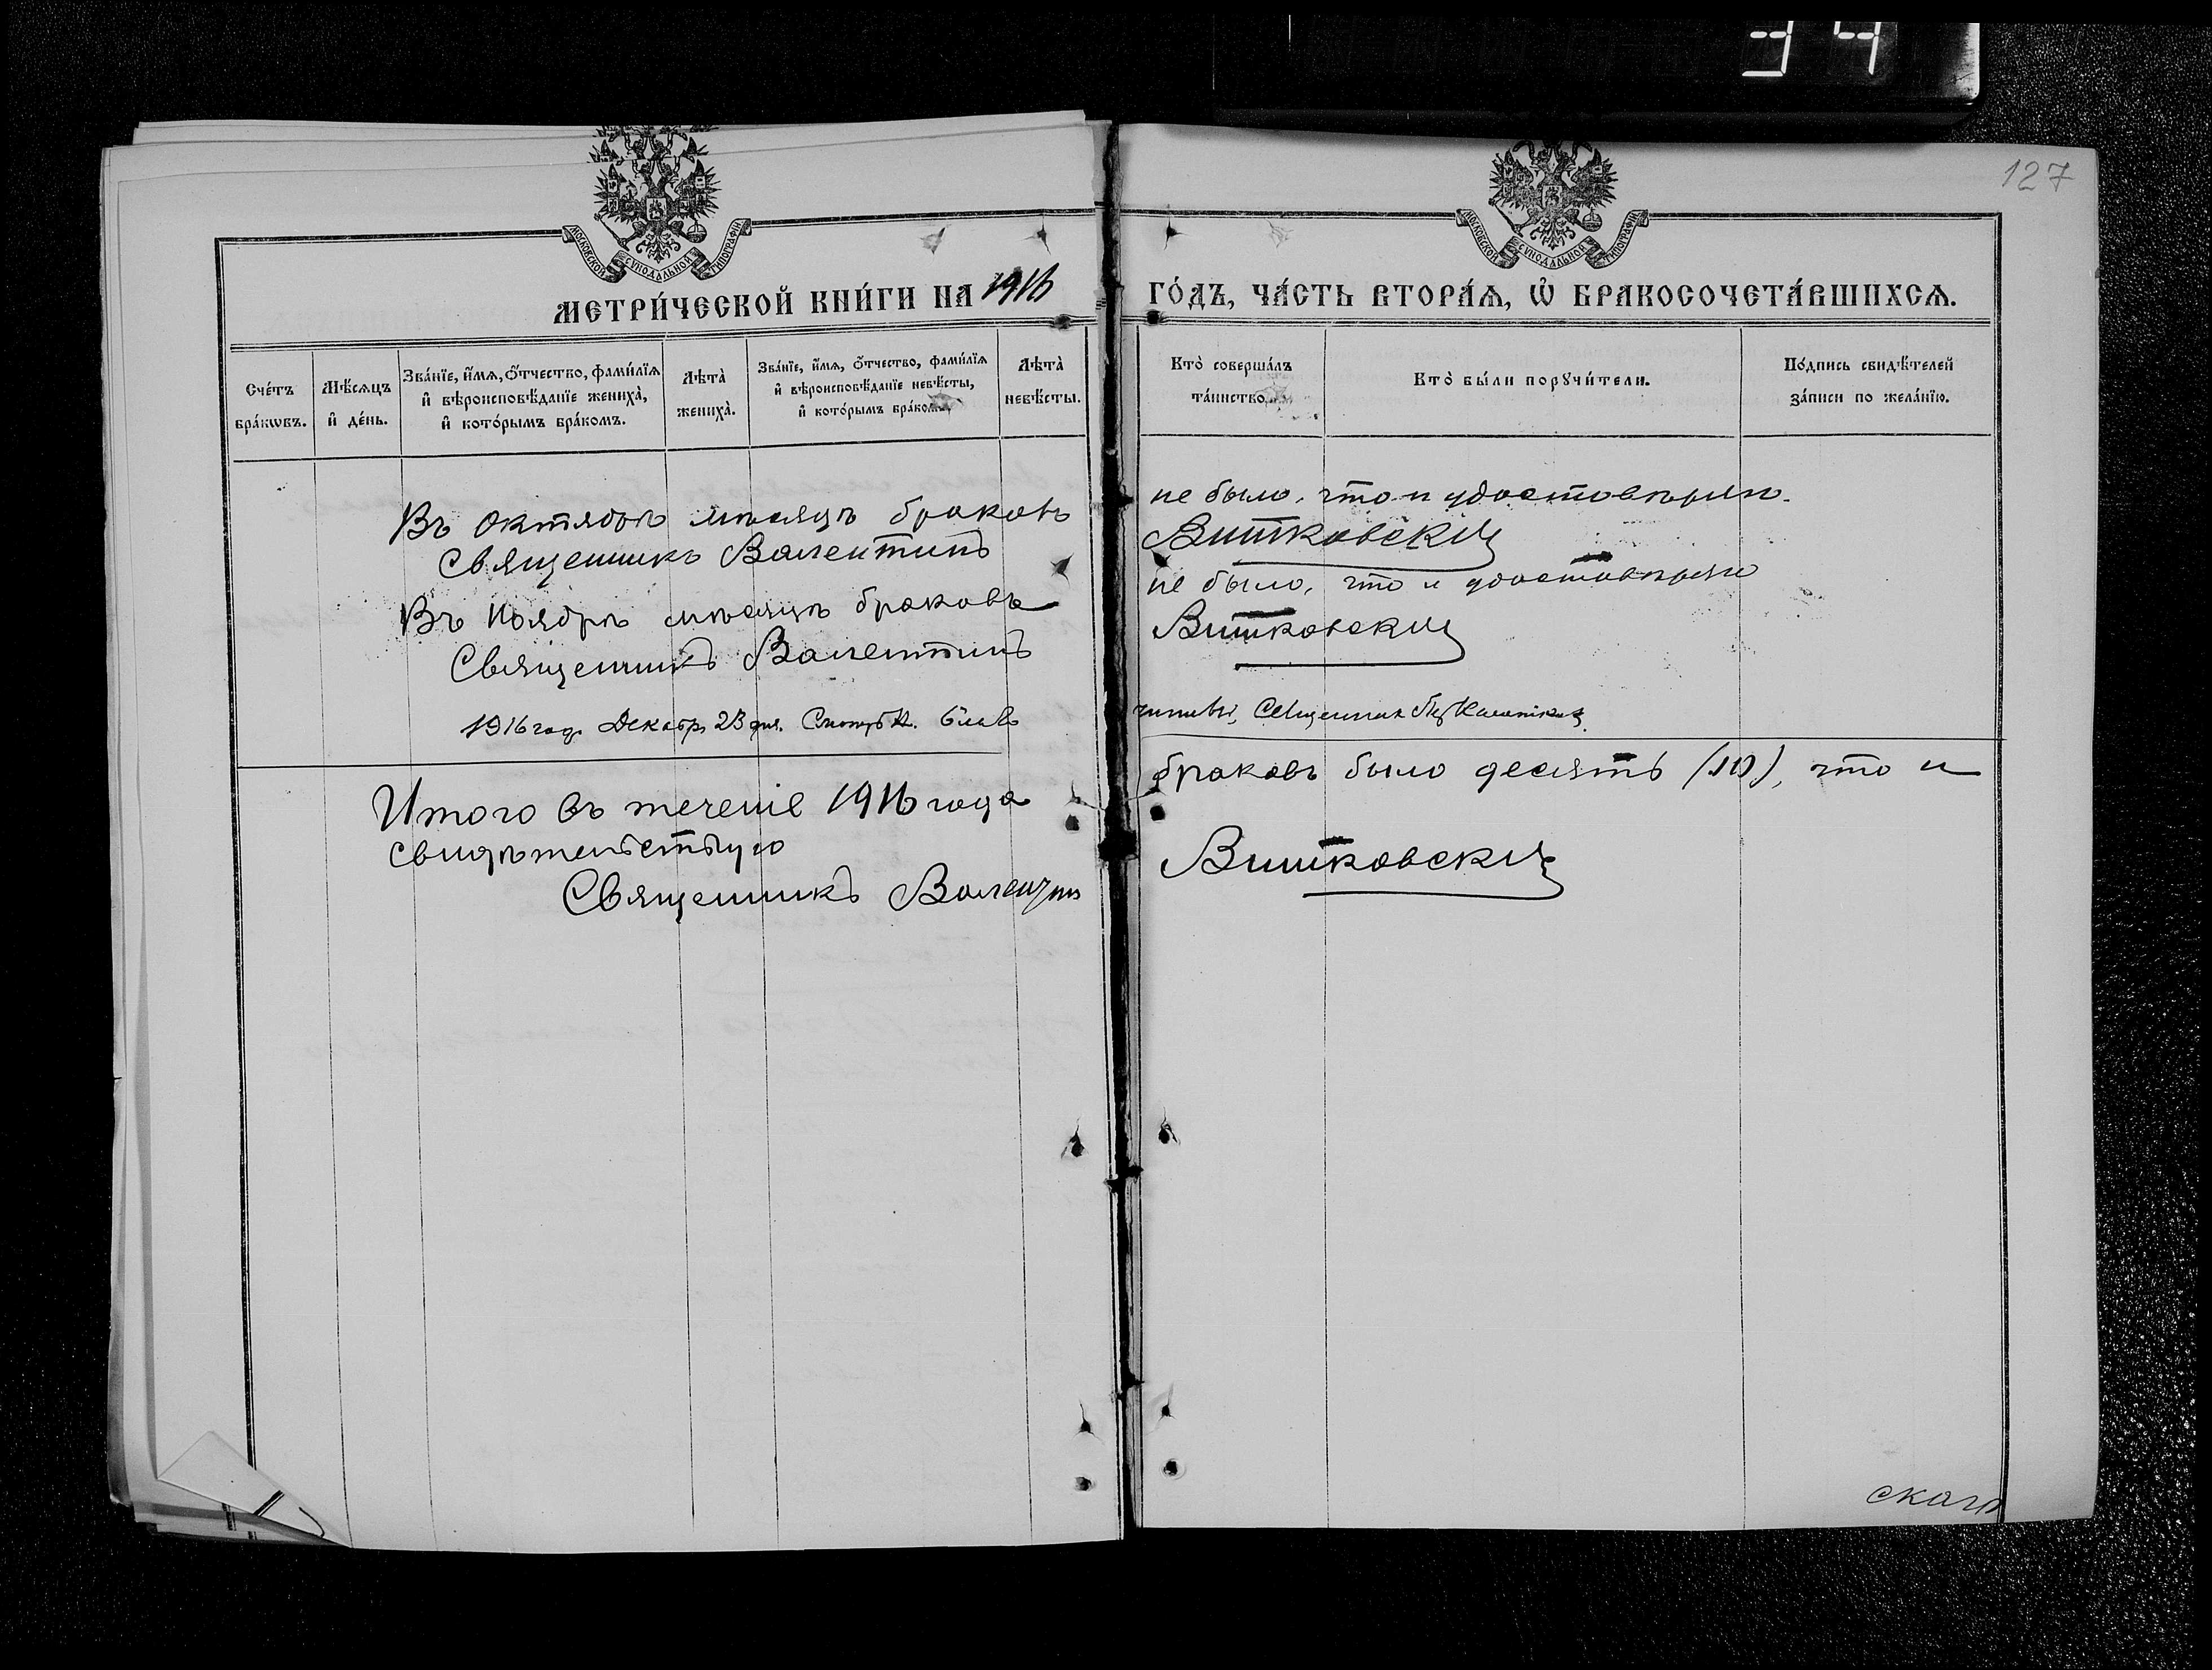 34
127
МОСКОВСКОЙ СѴНОДАЛЬНОЙ ТИПОГРАФІИ
МОСКОВСКОЙ СѴНОДАЛЬНОЙ ТИПОГРАФІИ
МЕТРИ́ЧЕСКОЙ КНИ́ГИ НА 1916 ГО́ДЪ, ЧА́СТЬ ВТОРА́Ѧ, Ѽ БРАКОСОЧЕТА́ВШИХСѦ.
Сче́тъ бра́кѡвъ.
Мѣ́сѧцъ и҆ де́нь.
Зва́нїе, и҆́мѧ, ѻ҆́тчество, фами́лїѧ и҆ вѣроисповѣ́данїе жениха̀, и҆ кото́рымъ бра́комъ.
Лѣта̀ жениха̀.
Зва́нїе, и҆́мѧ, ѻ҆́тчество, фами́лїѧ и҆ вѣроисповѣ́данїе невѣ́сты, и҆ кото́рымъ бра́комъ.
Лѣта̀ невѣ́сты.
Кто̀ соверша́лъ та́инство.
Кто̀ бы́ли порꙋчи́тели.
По́дпись свидѣ́телей за́писи по жела́нїю.
Въ Октябрѣ мѣсяцѣ браковъ не было, что и удостовѣряю.
Священникъ Валентинъ Витковскій
Въ Ноябрѣ мѣсяцѣ браковъ не было, что и удостовѣряю
Священникъ Валентинъ Витковскій
1916 год. Декабр. 23 дня. Священник
Итого въ теченіе 1916 года браковъ было десять (10), что и
свидѣтельствую
Священникъ Валентин Витковскій
скаго